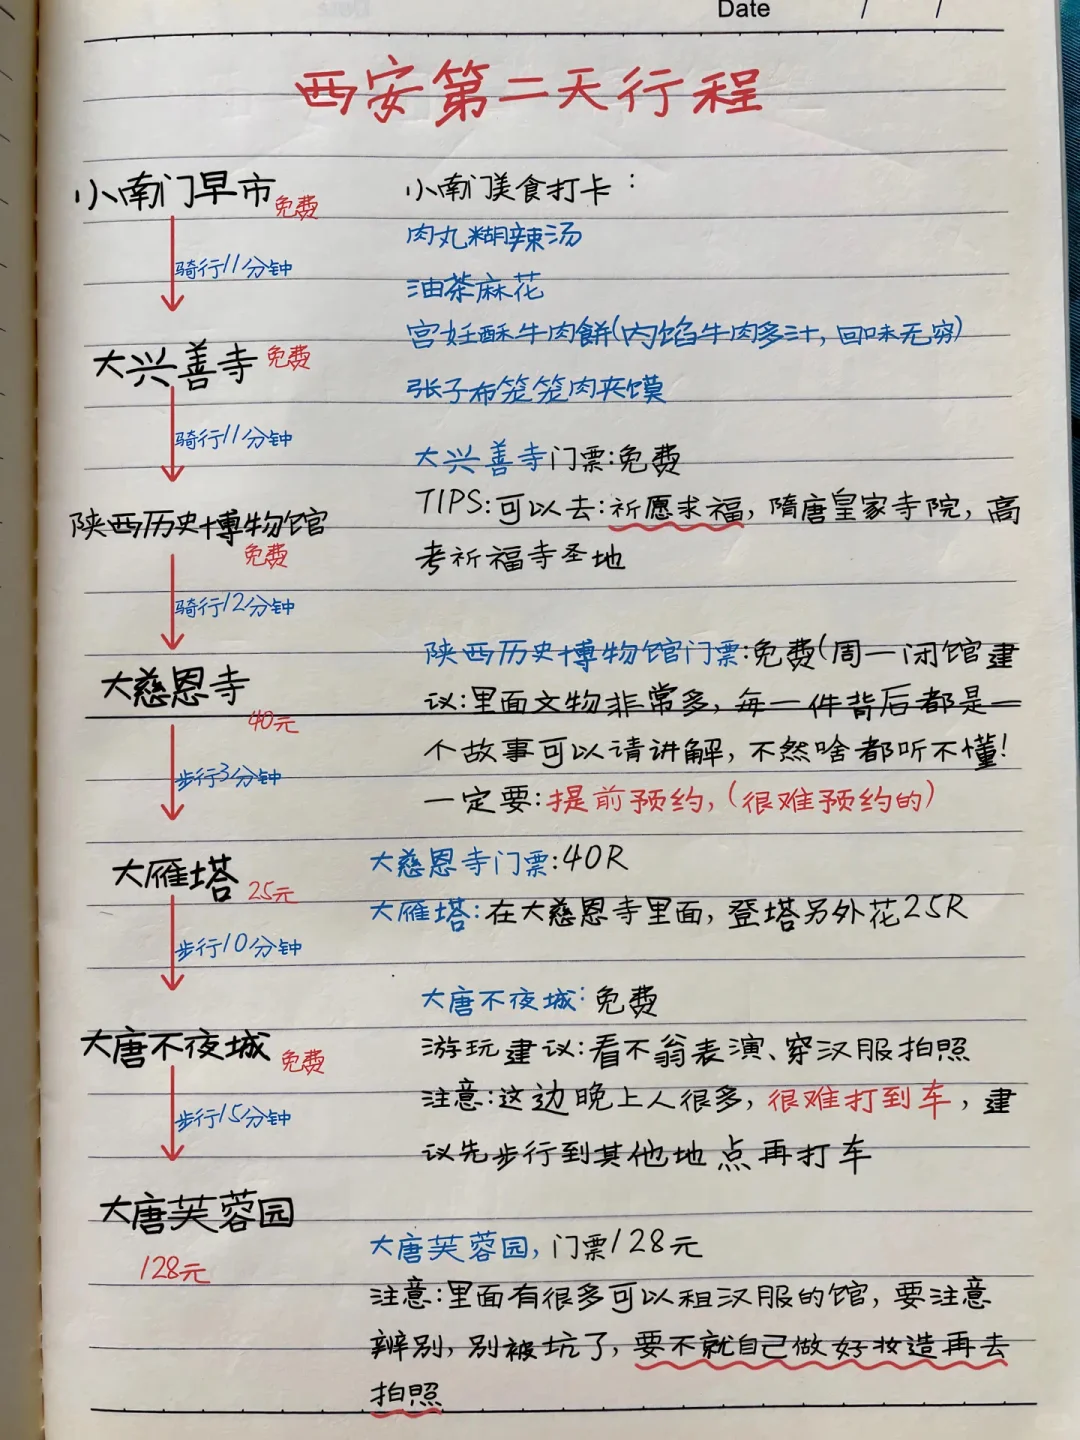 Date / /
西安第二天行程
小南门早市 免费
骑行11分钟
大兴善寺 免费
骑行11分钟
陕西历史博物馆
免费
骑行12分钟
大慈恩寺
40元
步行3分钟
大雁塔 25元
步行10分钟
大唐不夜城 免费
步行15分钟
大唐芙蓉园
128元
小南门美食打卡：
肉丸糊辣汤
油茶麻花
宫廷酥牛肉餅(内馅牛肉多汁，回味无穷)
张子布笼笼肉夹馍
大兴善寺门票:免费
TIPS:可以去:祈愿求福，隋唐皇家寺院，高
考祈福寺圣地
陕西历史博物馆门票:免费(周一闭馆建
议:里面文物非常多，每一件背后都是一
个故事可以请讲解，不然啥都听不懂!
一定要:提前预约，(很难预约的)
大慈恩寺门票:40R
大雁塔:在大慈恩寺里面，登塔另外花25R
大唐不夜城:免费
游玩建议:看不翁表演、穿汉服拍照
注意:这边晚上人很多，很难打到车，建
议先步行到其他地点再打车
大唐芙蓉园，门票128元
注意:里面有很多可以租汉服的馆，要注意
辨别，别被坑了，要不就自己做好妆造再去
拍照